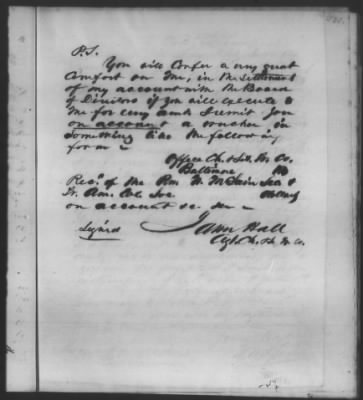 P.S.
You will confer a very great
comfort on me, in the settlement
of my account with the Board
of Directors if you will execute to
me for any amt I remit you
on account a voucher, in
something like the following
form –
Office Ch.
Baltimore
Rec'd of the Rev. W. McLain Sec &
Tr. Am. Col. Soc.
on account &c. &c –
Signed
James Hall
Agt. Ch. & L. T. Co.